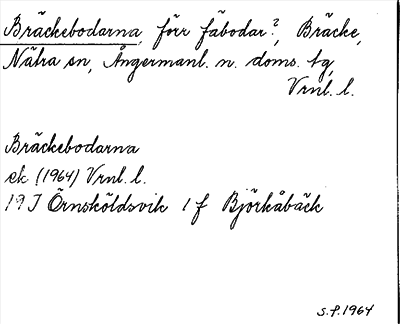 Bräckebodarna, förr fäbodar?, Bräcke,
Nätra sn, Ångermanl. n. doms. tg,
Vrnl. l.
Bräckebodarna
ek (1964) Vrnl. l.
19J Örnsköldsvik 1f Björkåbäck
S.P. 1964